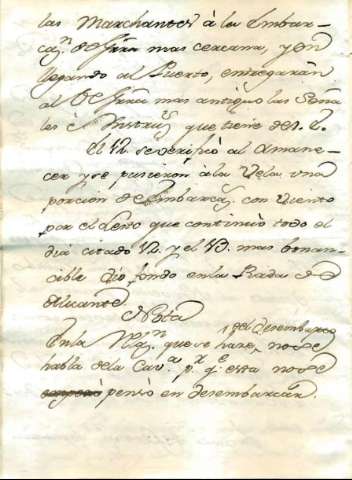 las Marchantes à la Embar-
caz.n de Grra mas cercana, y en
llegando al Puerto, entregarán
al de Grra mas antiguo las Seña
les è Instruz.s que tiene de
El 12 se verificó al Amane-
cer y se pusieron à la Vela una
porcion de Embarcaz.s con Viento
por el Leste que continuò todo el
dia citado 12 y el 13 mas bonan-
cible dio fondo en la Rada de
Alicante
Nota
En la R.n que se hace, del desembarco no se
habla de la Cav.a p.r q.e esta no se
pensò en desembarcar.